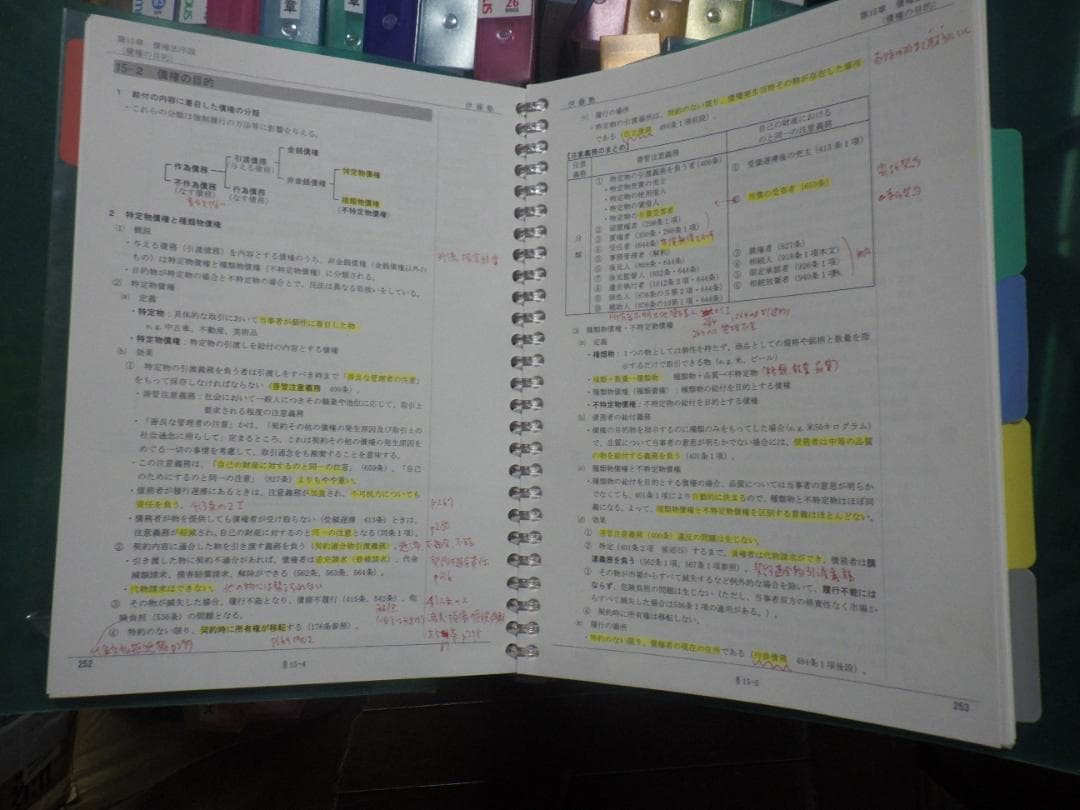 第15章 債権法序説
(債権の目的)
15-2 債権の目的
伊藤塾
1 給付の内容に着目した債権の分類
・これらの分類は強制履行の方法等に影響を与える。
作為債務
引渡債務
(与える債務)
金銭債権
非金銭債権
特定物債権
種類物債権
(不特定物債権)
不作為債務
(なす債務)
行為債務
(なす債務)
2 特定物債権と種類物債権
(1) 概説
・与える債務(引渡債務)を内容とする債権のうち、非金銭債権(金銭債権以外の
もの)は特定物債権と種類物債権(不特定物債権)に分類される。
・目的物が特定物の場合と不特定物の場合とで、民法は異なる取扱いをしている。
(2) 特定物債権
(a) 定義
・特定物:具体的な取引において当事者が個性に着目した物
e.g. 中古車、不動産、美術品
・特定物債権:特定物の引渡しを給付の内容とする債権
(b) 効果
① 特定物の引渡義務を負う者は引渡しをすべき時まで「善良な管理者の注意」
をもって保存しなければならない(善管注意義務 400条)。
・善管注意義務:社会において一般人につきその職業や地位に応じて、取引上
要求される程度の注意義務
・「善良な管理者の注意」かは、「契約その他の債権の発生原因及び取引上の
社会通念に照らして」定まるところ、これは契約その他の債権の発生原因を
めぐる一切の事情を考慮して、取引通念をも勘案することを意味する。
・この注意義務は、「自己の財産に対するのと同一の注意」(659条)、「自己
のためにするのと同一の注意」(827条)よりもやや重い。
・債務者が履行遅滞にあるときは、注意義務が加重され、不可抗力についても
責任を負う。413条の2 I
・債務者が物を提供しても債権者が受け取らない(受領遅滞 413条)ときは、
注意義務が軽減され、自己の財産に対するのと同一の注意となる(同条1項)。
② 契約内容に適合した物を引き渡す義務を負う(契約適合物引渡義務)。
・引き渡した物に契約不適合があれば、債権者は追完請求(修補請求)、代金
減額請求、損害賠償請求、解除ができる(562条、563条、564条)。
・代物請求はできない。他の物には替えられない
③ その物が滅失した場合、履行不能となり、債務不履行(415条、542条)、危
険負担(536条)の問題となる。
④ 特約のない限り、契約時に所有権が移転する(176条参照)。
p267
p280
252
吾15-4
第15章
(債権の目的)
伊藤塾
(c) 履行の場所
・特定物の引渡場所は、特約のない限り、債権発生当時その物が存在した場所
である(取立債務 484条1項前段)。
【注意義務のまとめ】
注意
義務
善管注意義務
自己の財産における
のと同一の注意義務
分
類
① 特定物の引渡義務を負う者(400条)
・特定物売買の売主
・特定物の使用借人
・特定物の賃借人
・特定物の有償受寄者
② 留置権者(298条1項)
③ 質権者(350条・298条1項)
④ 受任者(644条)
⑤ 事務管理者(解釈)
⑥ 後見人(869条・644条)
⑦ 後見監督人(852条・644条)
⑧ 遺言執行者(1012条3項・644条)
⑨ 保佐人(876条の5第2項・644条)
⑩ 補助人(876条の10第1項・644条)
① 受領遅滞後の売主(413条1項)
② 無償の受寄者(659条)
③ 親権者(827条)
④ 相続人(918条1項本文)
⑤ 限定承認者(926条1項)
⑥ 相続放棄者(940条1項)
(3) 種類物債権・不特定物債権
(a) 定義
・種類物:1つの物としては個性を持たず、商品としての規格や銘柄と数量を指
示するだけで取引できる物(e.g. 米、ビール)
・種類+数量=種類物 種類物+品質=不特定物(種類 数量 品質)
・種類物債権(種類債権):種類物の給付を目的とする債権
・不特定物債権:不特定物の給付を目的とする債権
(b) 債務者の給付義務
・債権の目的物を指示するのに種類のみをもってした場合(e.g. 米50キログラム)
で、品質について当事者の意思が明らかでない場合には、債務者は中等の品質
の物を給付する義務を負う(401条1項)。
(c) 種類物債権と不特定物債権
・種類物の給付を目的とする債権の場合、品質については当事者の意思が明らか
でなくても、401条1項により自動的に決まるので、種類物と不特定物はほぼ同
義になる。よって、種類物債権と不特定物債権を区別する意義はほとんどない。
(d) 効果
① 善管注意義務(400条)違反の問題は生じない。
② 特定(401条2項 後述(5))するまで、債権者は代物請求ができ、債務者は調
達義務を負う(562条1項、567条1項参照)。契約適合物引渡義務
③ その物が市場からすべて滅失するなど例外的な場合を除いて、履行不能には
ならず、危険負担の問題は生じない(ただし、当事者双方の帰責性なく市場か
らすべて滅失した場合は536条1項の適用がある。)。
④ 契約時に所有権は移転しない。
(e) 履行の場所
・特約のない限り、債権者の現在の住所である(持参債務 484条1項後段)。
吾15-5
253